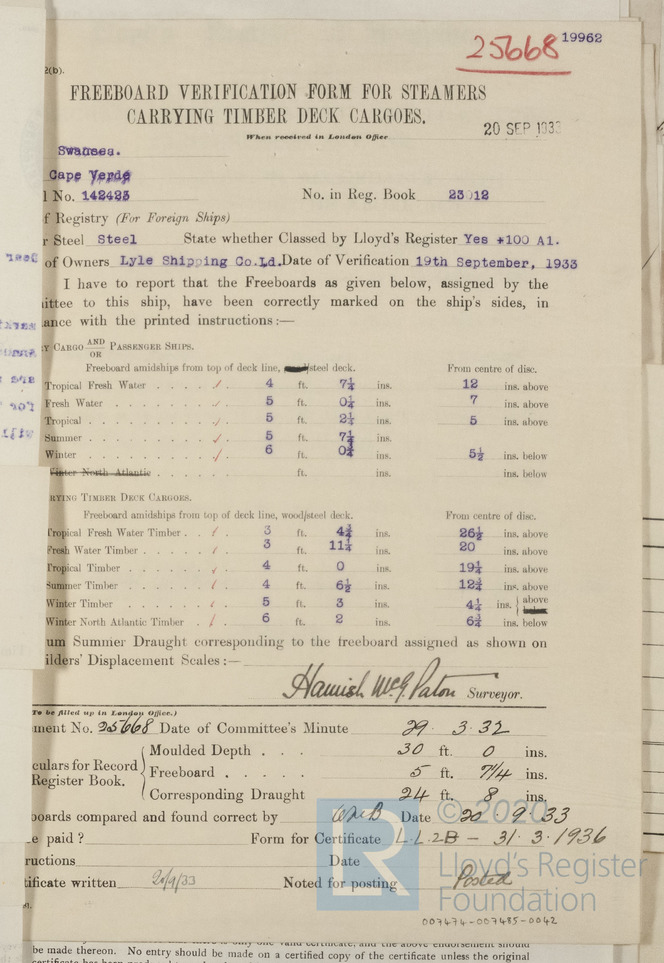 25668 19962
2(b).
FREEBOARD VERIFICATION FORM FOR STEAMERS
CARRYING TIMBER DECK CARGOES.
When received in London Office
20 SEP 1933
Swansea.
Cape Verde
l No. 142423 No. in Reg. Book 23012
f Registry (For Foreign Ships)
r Steel Steel State whether Classed by Lloyd's Register Yes +100 A1.
of Owners Lyle Shipping Co.Ld. Date of Verification 19th September, 1933
I have to report that the Freeboards as given below, assigned by the
ittee to this ship, have been correctly marked on the ship's sides, in
ance with the printed instructions:—
Y CARGO AND OR PASSENGER SHIPS.
Freeboard amidships from top of deck line, /steel deck. From centre of disc.
Tropical Fresh Water 4 ft. 7¼ ins. 12 ins. above
Fresh Water 5 ft. 0¼ ins. 7 ins. above
Tropical 5 ft. 2¼ ins. 5 ins. above
Summer 5 ft. 7¼ ins.
Winter 6 ft. ins. 5½ ins. below
Winter North Atlantic ft. ins. ins. below
RYING TIMBER DECK CARGOES.
Freeboard amidships from top of deck line, wood/steel deck. From centre of disc.
Tropical Fresh Water Timber 3 ft. 4¾ ins. 26½ ins. above
Fresh Water Timber 3 ft. 11¼ ins. 20 ins. above
Tropical Timber 4 ft. 0 ins. 19¼ ins. above
Summer Timber 4 ft. 6½ ins. 12¾ ins. above
Winter Timber 5 ft. 3 ins. 4¼ ins. above
Winter North Atlantic Timber 6 ft. 2 ins. 6¾ ins. below
um Summer Draught corresponding to the freeboard assigned as shown on
ilders' Displacement Scales:—
Hamish McG. Paton Surveyor.
To be filled up in London Office.)
ment No. 25668 Date of Committee's Minute 29. 3. 32
culars for Record
Register Book.
Moulded Depth 30 ft. 0 ins.
Freeboard 5 ft. 7¼ ins.
Corresponding Draught 24 ft. 8 ins.
boards compared and found correct by Date 20. 9. 33
e paid ? Form for Certificate L.L.2B – 31. 3. 1936
ructions Date
tificate written 20/9/33 Noted for posting Posted
© 2020
Lloyd's Register
Foundation
007474-007485-0042
be made thereon. No entry should be made on a certified copy of the certificate unless the original